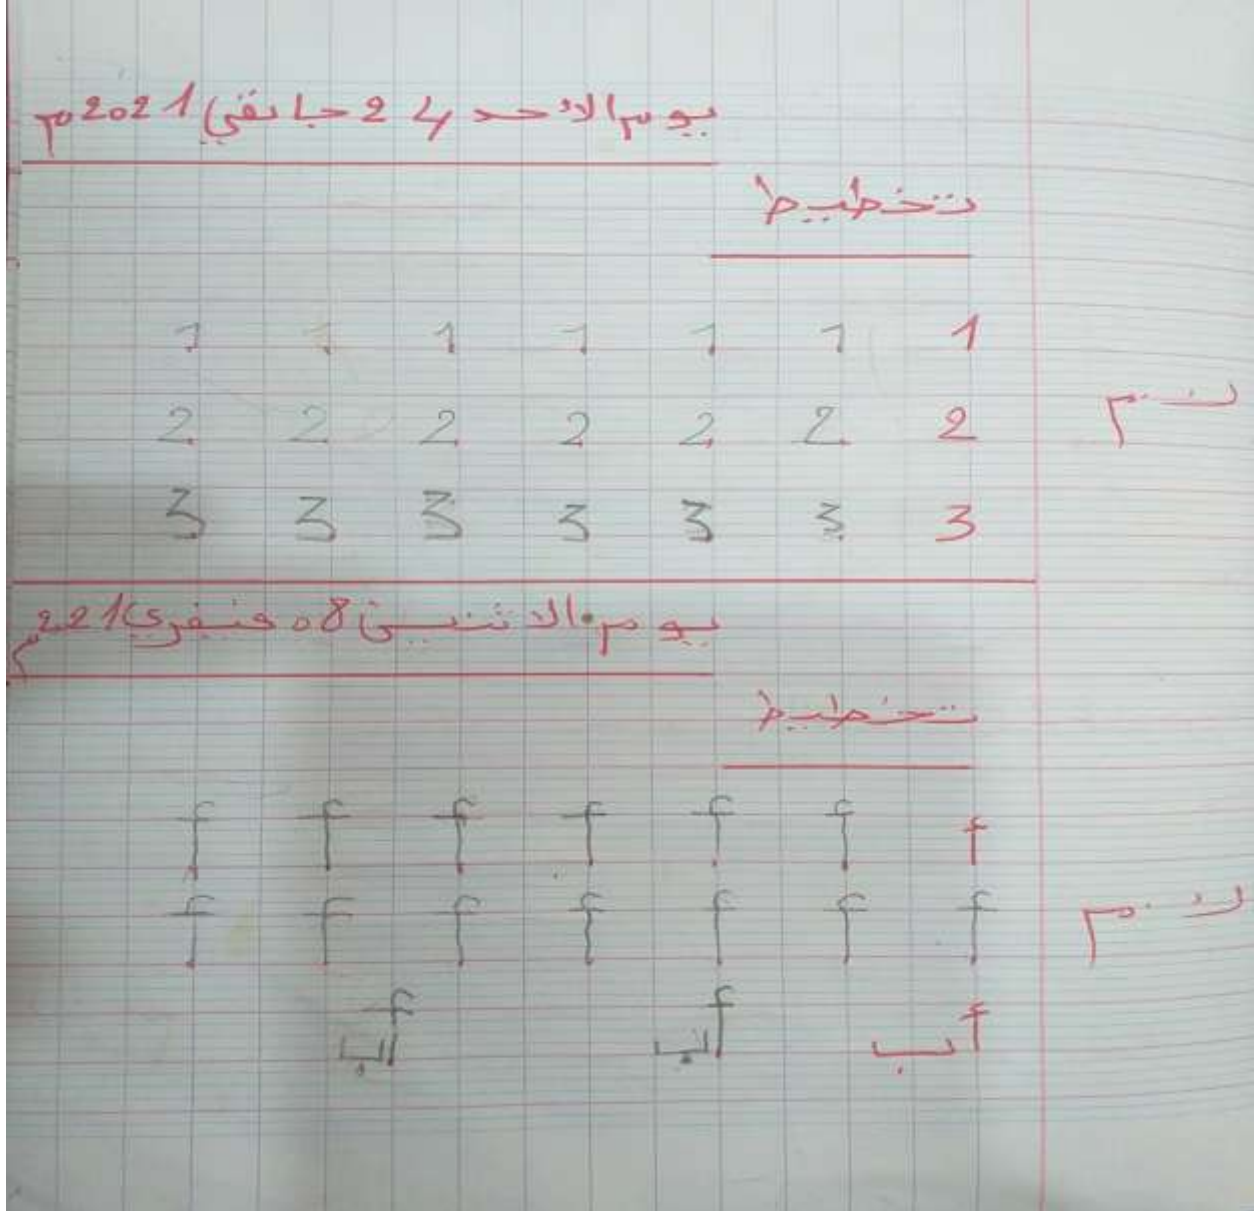 يوم الاحد 24 جانفي 2021م
تخطيط
1 1 1 1 1 1 1
2 2 2 2 2 2 2
3 3 3 3 3 3 3
يوم الاثنين 08 فيفري 221م
تخطيط
أ أ أ أ أ أ أ
أ أ أ أ أ أ أ
أب أب أب